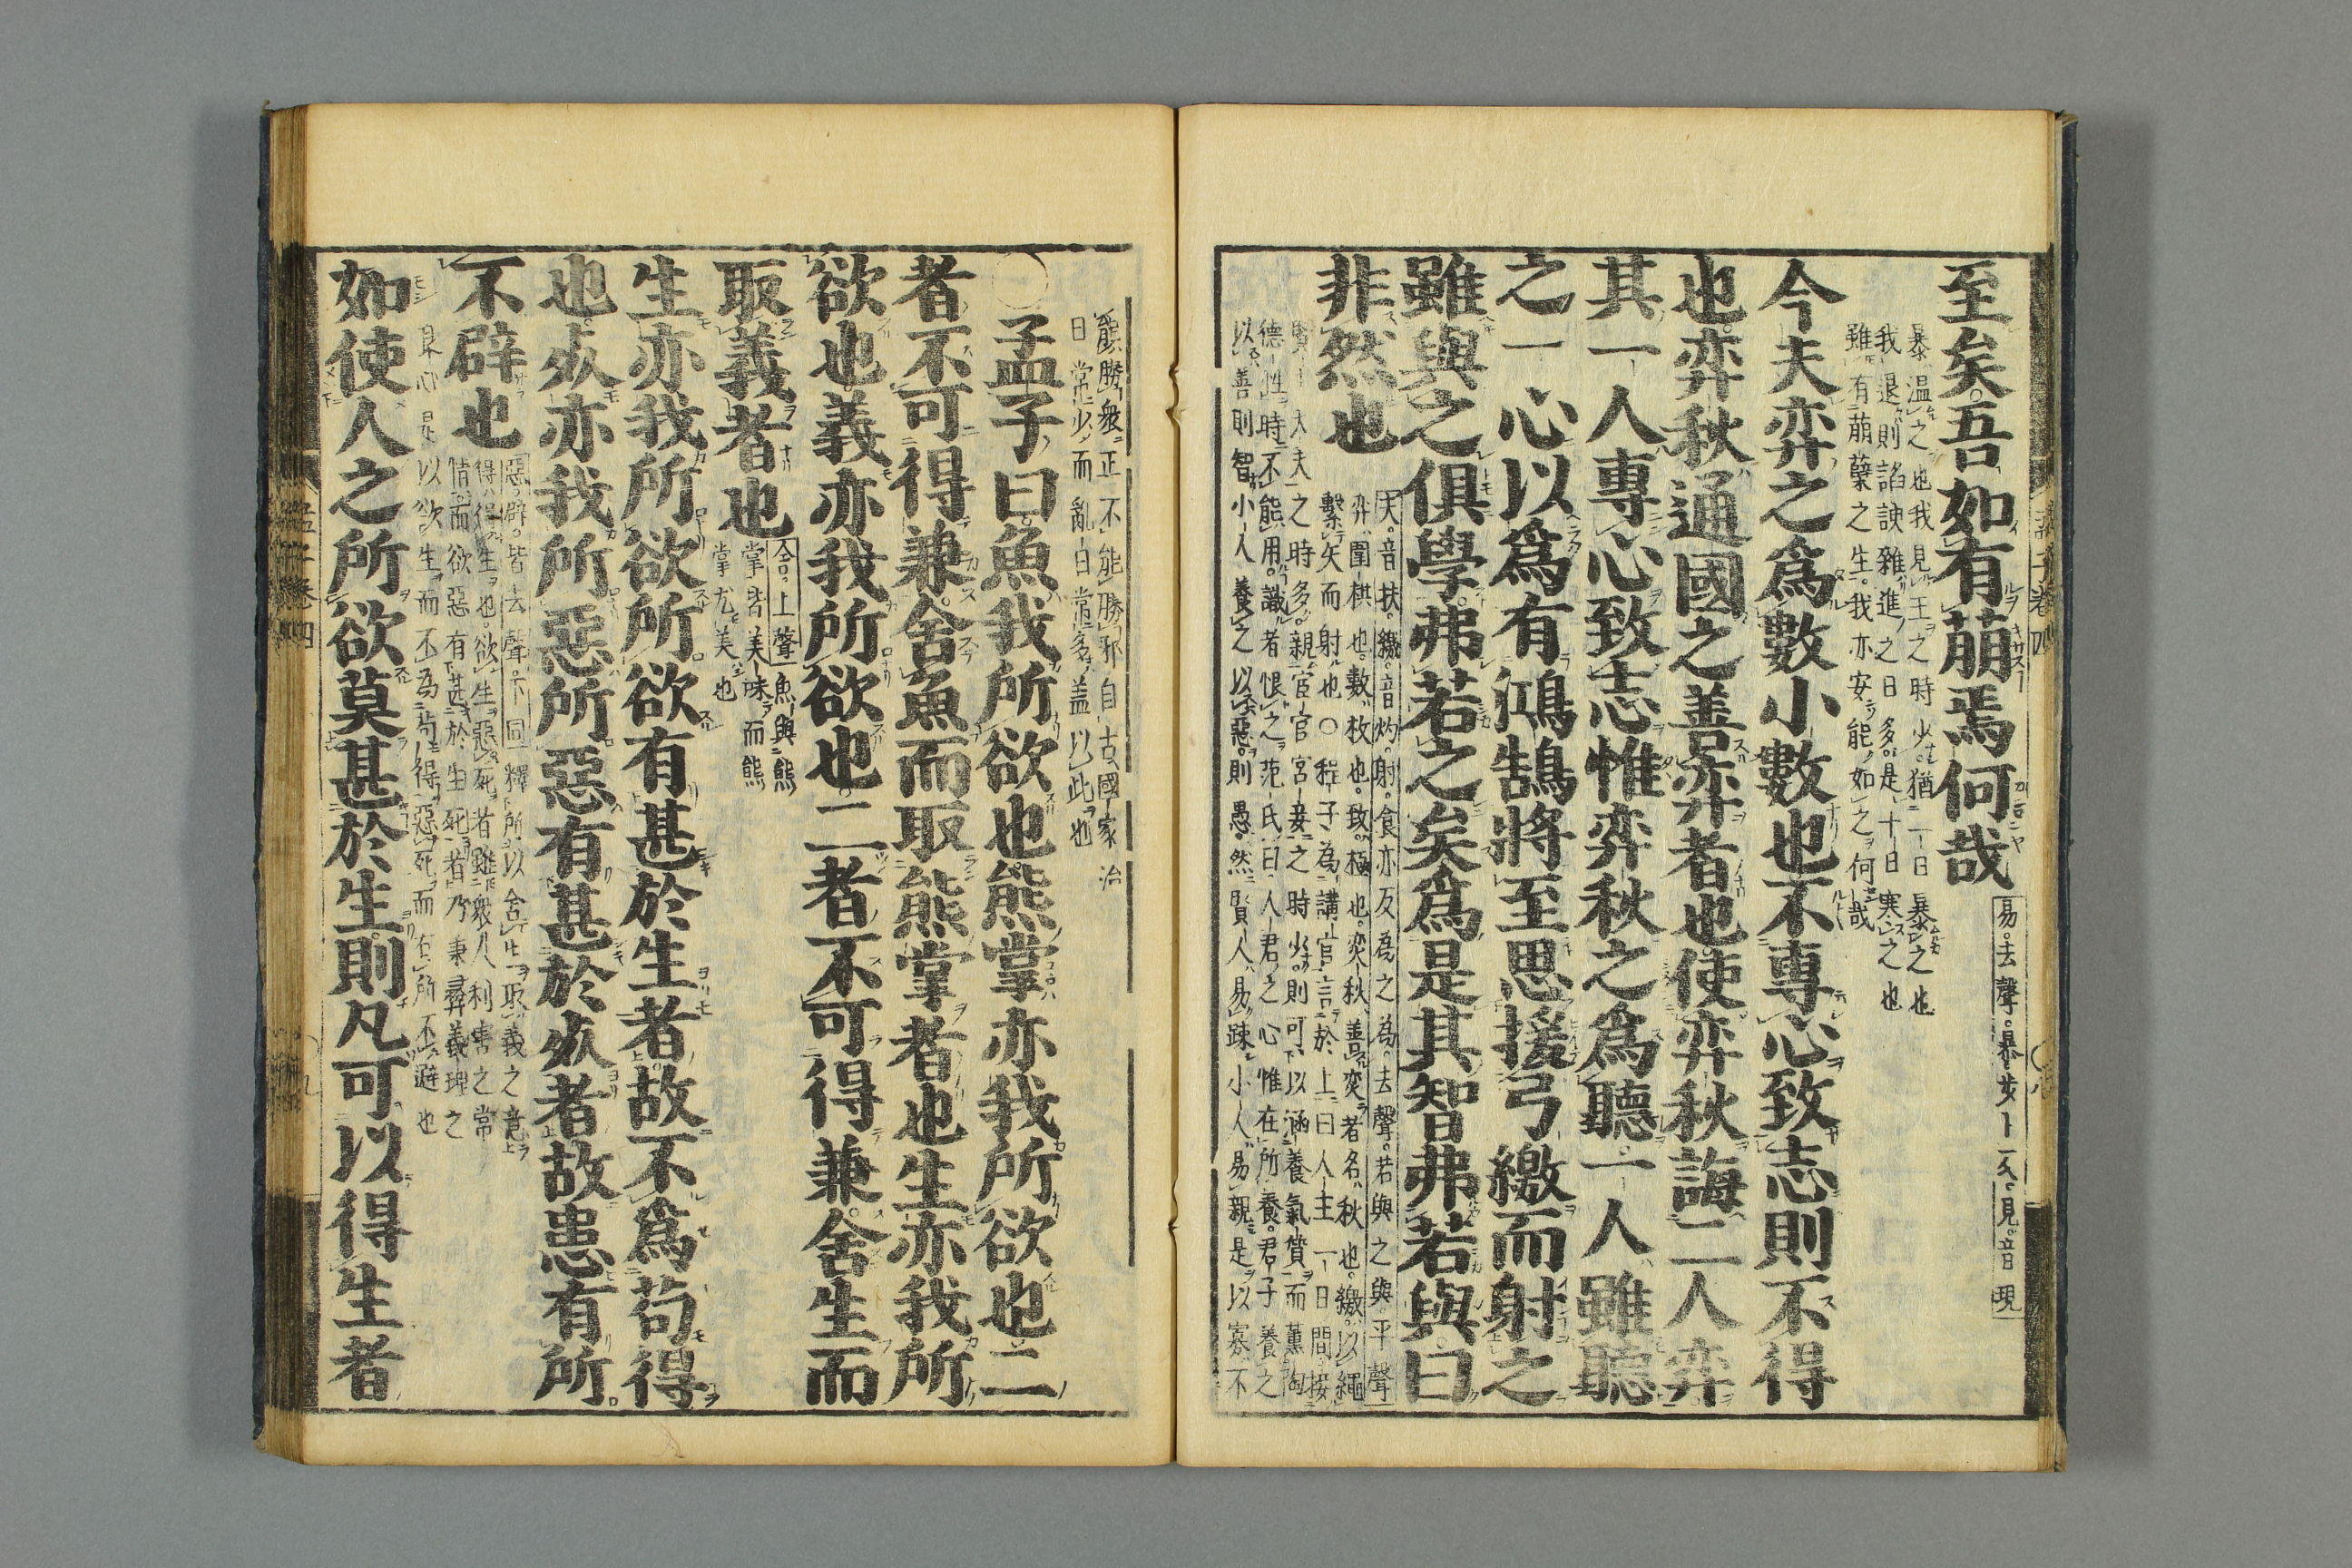 至矣吾如有萌焉何哉
易去聲暴歩卜反見音現
暴温之也我見王之時少猶一日暴之也
我退則諂諛雜進之日多是十日寒之也
雖有萌蘖之生我亦安能如之何哉
今夫弈之爲數小數也不專心致志則不得
也弈秋通國之善弈者也使弈秋誨二人弈
其一人專心致志惟弈秋之爲聽一人雖聽
之一心以爲有鴻鵠將至思援弓繳而射之
雖與之俱學弗若之矣爲是其智弗若與曰
非然也
夫音扶繳音灼射食亦反為之為去聲若與之與平聲
弈圍棋也數枚也致極也奕秋善奕者名秋也繳以繩
繫矢而射也○程子為講官言於上曰人主一日間接
賢士大夫之時多親宦官宮妾之時少則可以涵養氣質而薫陶
德性時不能用識者恨之范氏曰人君之心惟在所養君子養之
以善則智小人養之以惡則愚然賢人易疎小人易親是以寡不
能勝衆正不能勝邪自古國家治
日常少而亂日常多盖以此也
○孟子曰魚我所欲也熊掌亦我所欲也二
者不可得兼舍魚而取熊掌者也生亦我所
欲也義亦我所欲也二者不可得兼舍生而
取義者也
舍上聲魚與熊
掌皆美味而熊
掌尤美也
生亦我所欲所欲有甚於生者故不爲苟得
也死亦我所惡所惡有甚於死者故患有所
不辟也
惡辟皆去聲下同釋所以舍生取義之意
得得生也欲生惡死者雖衆人利害之常
情而欲惡有甚於生死者乃秉彛義理之
良心是以欲生而不為苟得惡死而有所不避也
如使人之所欲莫甚於生則凡可以得生者